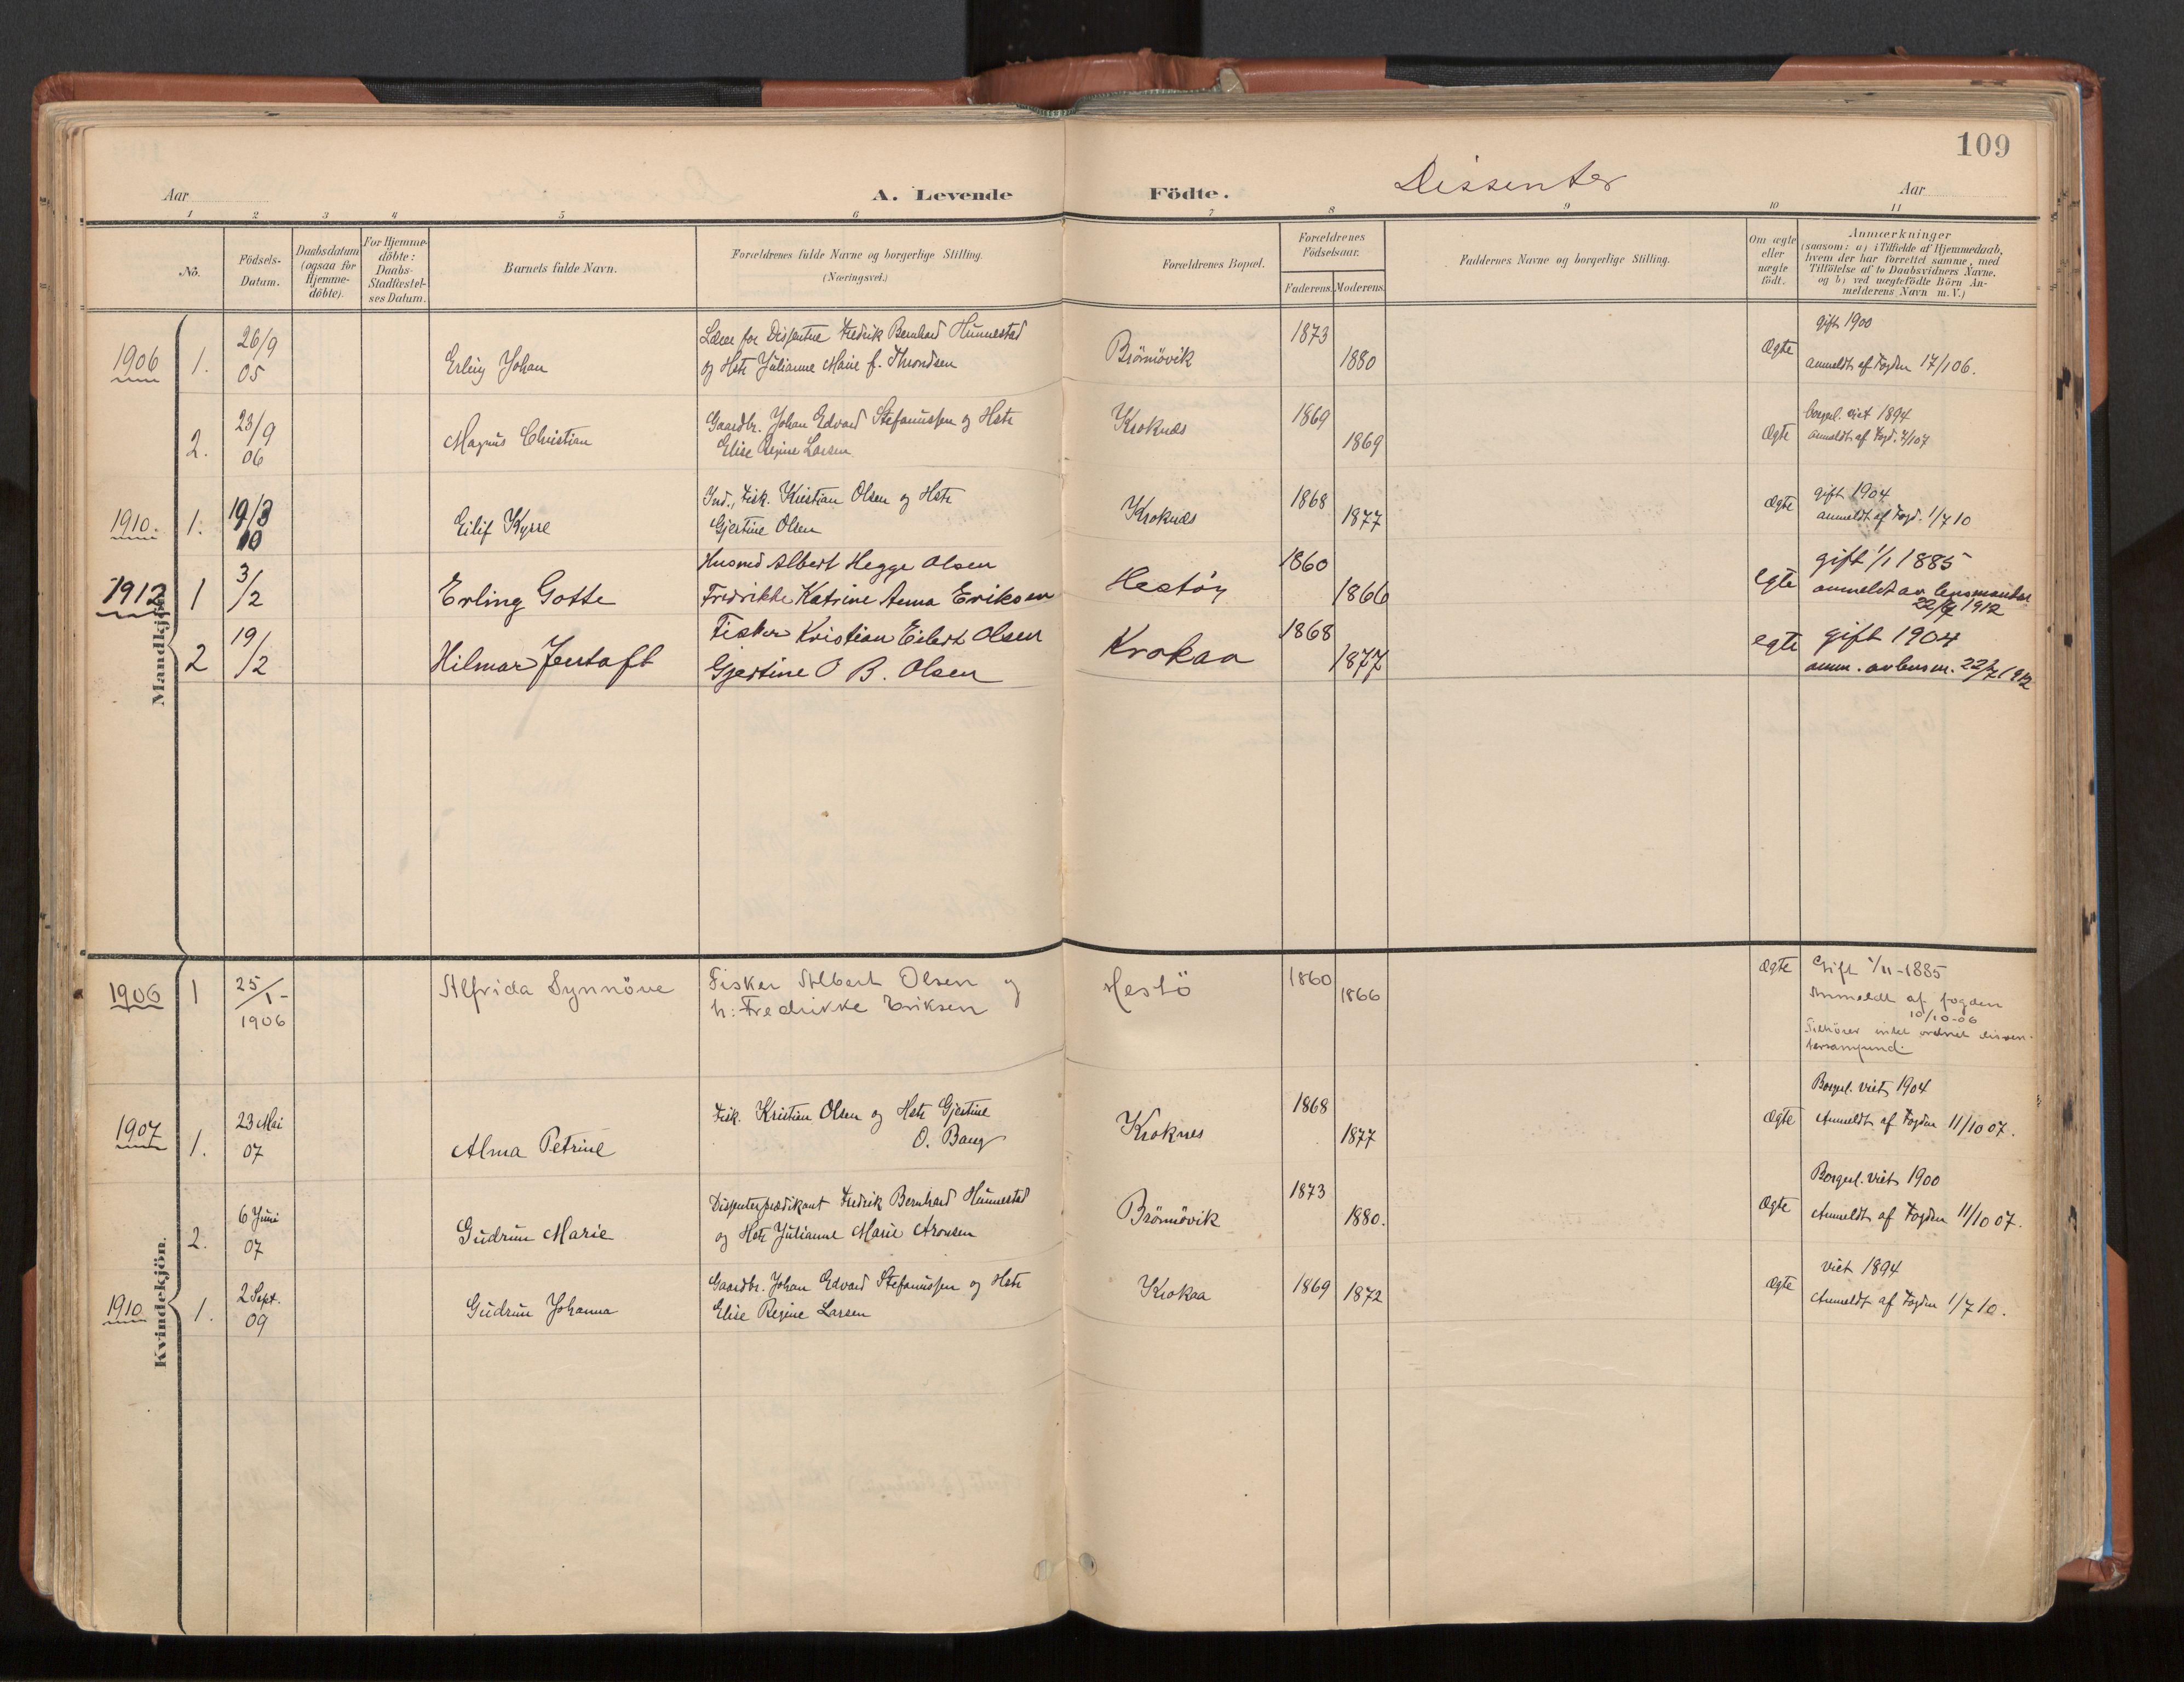 109
Dissenter
Aar A. Levende Födte. Aar
1 2 3 4 5 6 7 8 9 10 11
Nö.
Födsels-
Datum.
Daabsdatum
(ogsaa for
Hjemme-
döbte).
For Hjemme-
döbte:
Daabs-
Stadfæstel-
ses Datum.
Barnets fulde Navn.
Forældrenes fulde Navne og borgerlige Stilling.
(Næringsvei.)
Forældrenes Bopæl.
Forældrenes
Födselsaar.
Faderens. Moderens.
Faddernes Navne og borgerlige Stilling.
Om ægte
eller
uægte
födt.
Anmærkninger
(saasom: a) i Tilfælde af Hjemmedaab,
hvem der har forrettet samme, med
Tilföielse af to Daabsvidners Navne.
og b) ved uægtefödte Börn An-
melderens Navn m. V.)
Mandkjön.
1906 1. 26/9
05
Erling Johan
Lærer for Dissentere Fredrik Bernhard Hunnestad
og Hstr Julianne Marie f. Throndsen
Brömövik
1873
1880
Ægte
gift 1900
anmeldt af Fogden 17/1 06.
2. 23/9
06
Magnus Christian
Gaardbr. Johan Edvard Stefanussen og Hstr
Elise Regine Larsen
Kroknæs
1869
1869
Ægte
borgerl. viet 1894
anmeldt af Fogd. 7/1 07
1910. 1. 19/3
10
Eilif Kyrre
Ind., Fisk. Kristian Olsen og Hstr
Gjertine Olsen
Kroknæs
1868
1877
Ægte
gift 1904
anmeldt af Fogd. 1/7 10
1912 1 3
/2
Erling Gotte
Husmd Albert Hegge Olsen
Fredrikke Katrine Anna Eriksen
Hestöy
1860
1866
egte
gift 1/1 1885
anmeldt av lensmanden
22/7 1912
2 19
/2
Hilmar Jentoft
Fisker Kristian Eilert Olsen
Gjertine O B. Olsen
Krokaa
1868
1877
egte
gift 1904
anm. av lensm. 22/7 1912
Kvindekjön.
1906 1 25
/1-
1906
Alfrida Synnöve
Fisker Albert Olsen og
h: Fredrikke Eriksen
Hestö
1860
1866
Ægte
Gift 1/11-1885
Anmeldt af fogden
10/10-06
Tilhörer intet ordnet dissen-
tersamfund.
1907 1. 23 Mai
07
Alma Petrine
Fisk. Kristian Olsen og Hstr Gjertine
O. Bang
Kroknes
1868
1877
Ægte
Borgerl. viet 1904
Anmeldt af Fogden 11/10 07.
2. 6 Juni
07
Gudrun Marie
Dissenterprædikant Fredrik Bernhard Hunnestad
og Hstr Julianne Marie Aronsen
Brömövik
1873
1880.
Ægte
Borgerl. viet 1900
Anmeldt af Fogden 11/10 07.
1910 1. 2 Sept.
09
Gudrun Johanna
Gaardbr. Johan Edvard Stefanussen og Hstr
Elise Regine Larsen
Krokaa
1869 1872
Ægte
viet 1894
Anmeldt af Fogden 1/7 10.